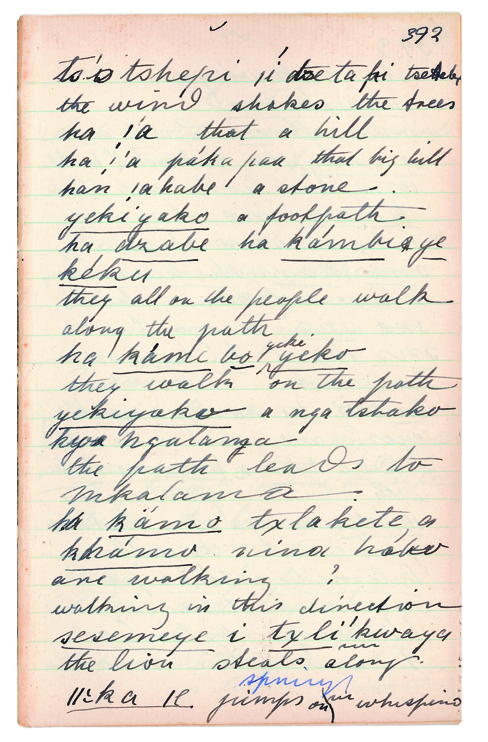 392
ts'otshepi ii' dzetapi
the wind shakes the trees
ha !'a that a hill
ha !'a pákapaa that big hill
han !ahabe a stone.
yekiyako a footpath
ha dzabe ha kámbiaye
kéku
they all on the people walk
along the path
ha káme bo yeki yeko
they walk on the path
yekiyako a nga tshako
kwa ngalanga
the path leads to
mkalama.
ha kämo txlakete, a
khámo nina hábo
are walking ?
walking in this direction
sesemeye i txlí'kwaya
the lion steals along.
spring
jumps on whisping